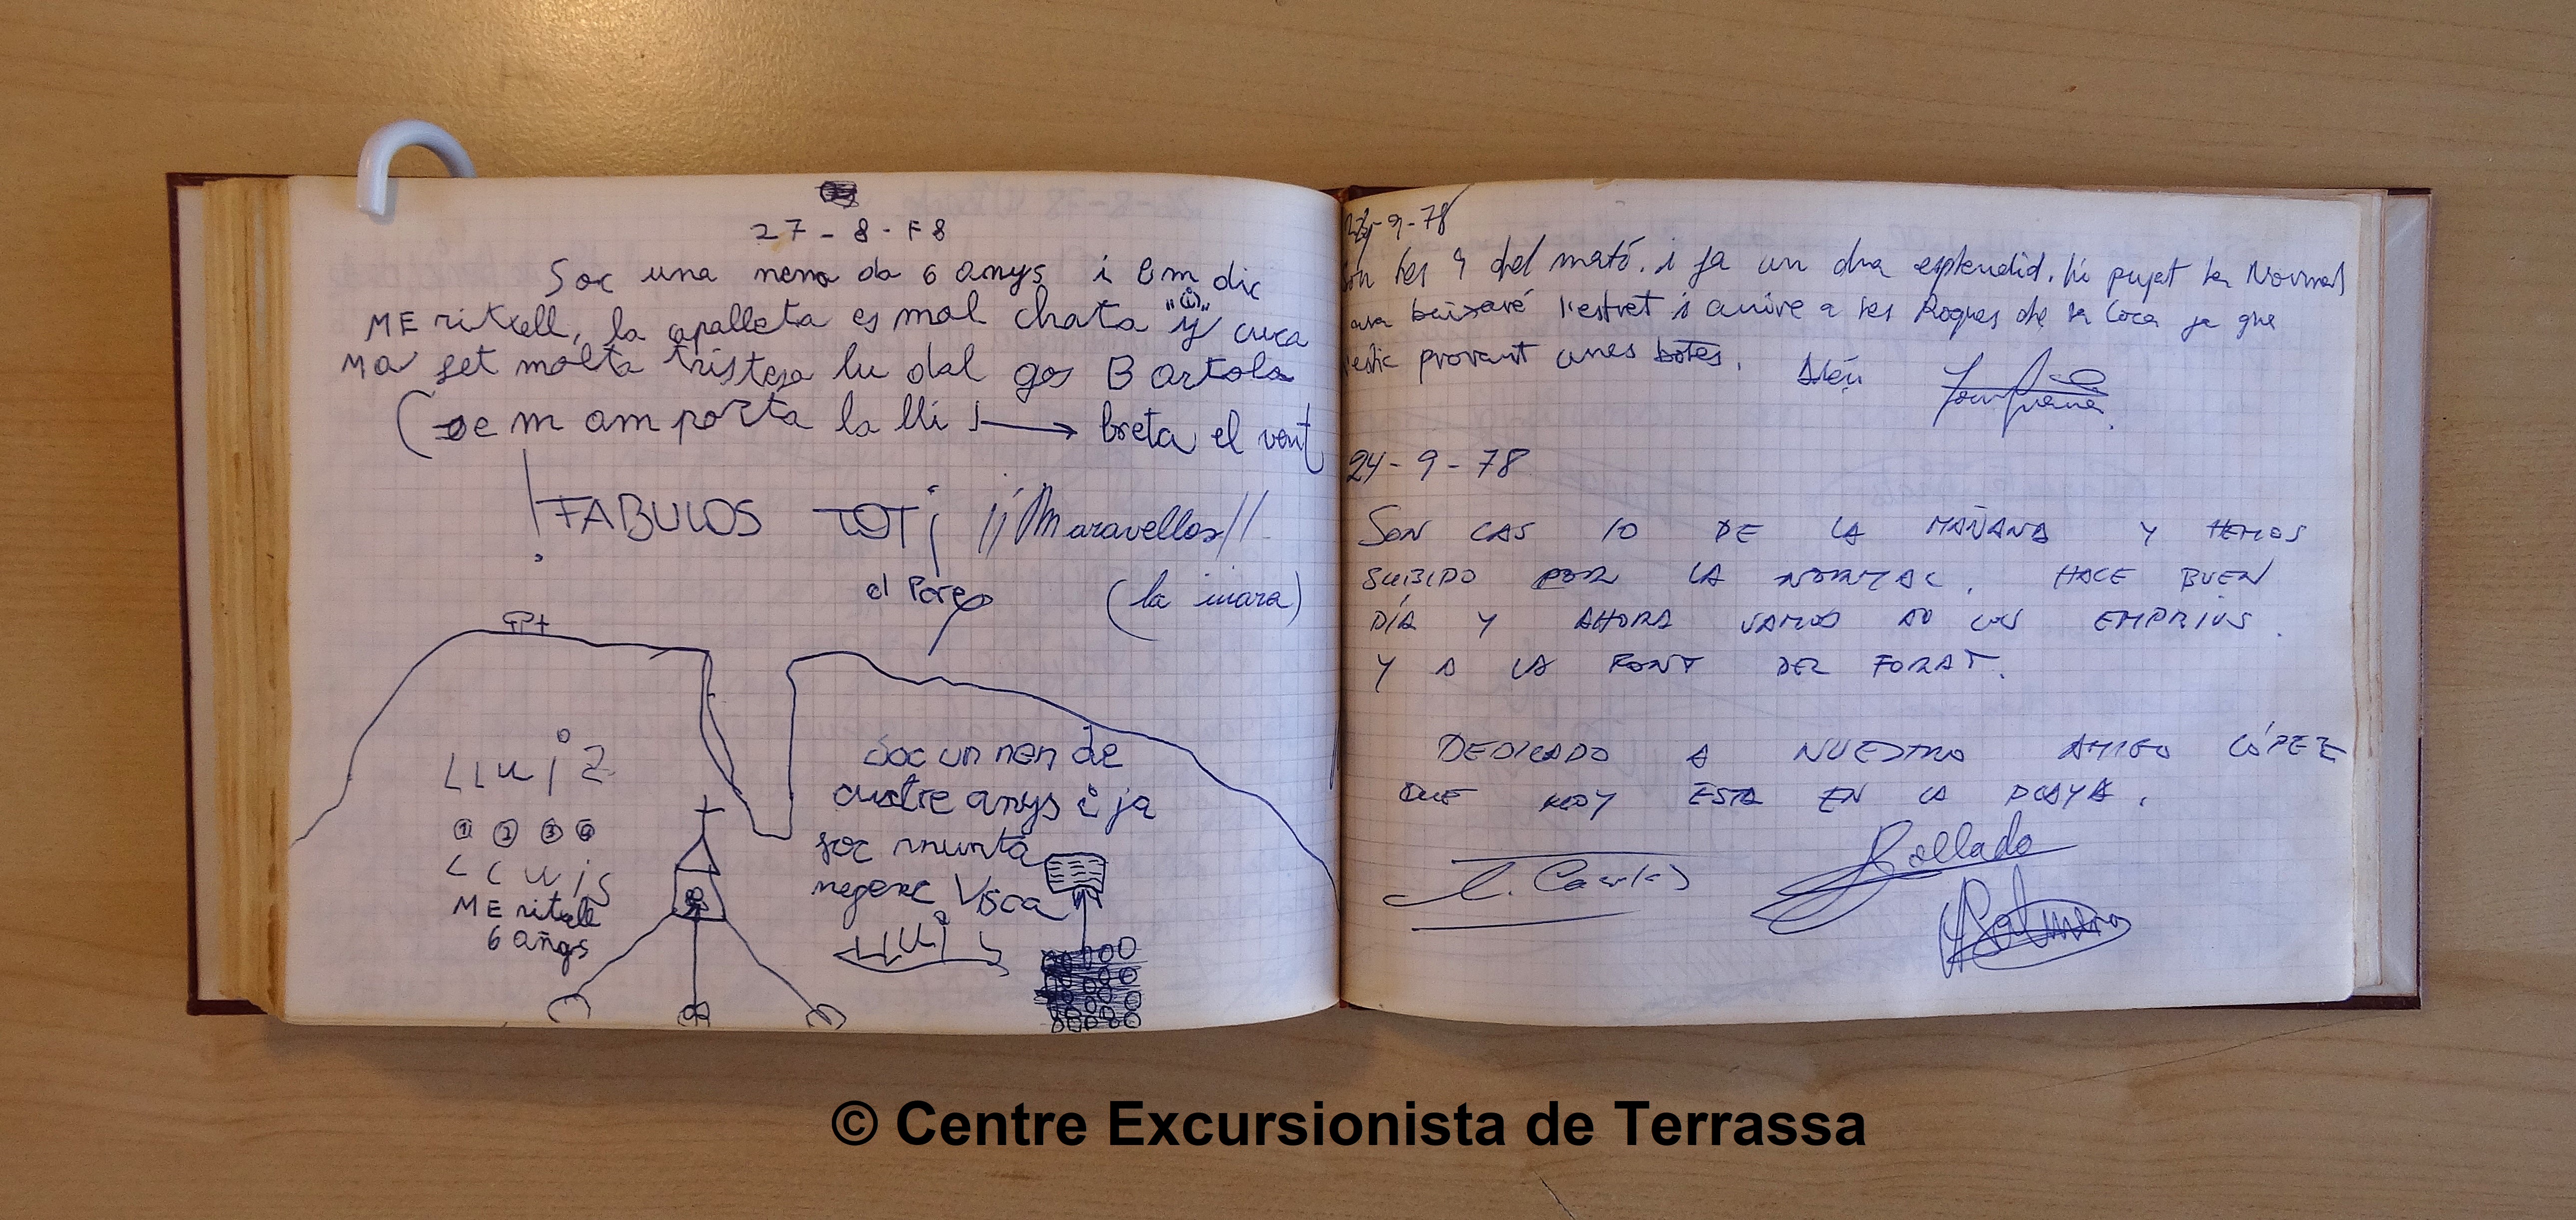 27-8-78
Soc una nena da 6 anys i em dic
MEritxell, la capalleta es mol chata "y" "(i)" cuca
Ma fet molta tristesa lu dal gos Bartola
(se m amporta la lli breta el vent
!FABULOS TOT¡ ¡¡Maravellos!!
el Pare (la mara)
LLuiz
1 2 3 4
LLuis
MEritxell
6 añys
Soc un nen de
cuatre anys i ja
soc munta
negenc Visca
LLUIS
22-9-78
Son les 9 del matí. i fa un dia esplendid. hi pujat la Normal
ara baixaré l'estret i aniré a les Roques de la Coca ja que
estic provant unes botes. Adéu
24-9-78
SON LAS 10 DE LA MAÑANA Y HEMOS
SUBIDO POR LA NORMAL. HACE BUEN
DÍA Y AHORA VAMOS A LOS EMPRIUS.
Y A LA FONT DEL FORAT.
DEDICADO A NUESTRO AMIGO LÓPEZ
QUE HOY ESTA EN LA PLAYA.
Collado
© Centre Excursionista de Terrassa